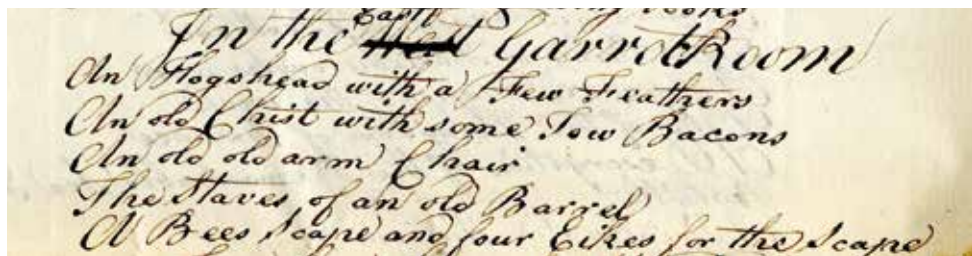 Books
In the East West Garrot Room
An Hogshead with a Few Feathers
An old Christ with some Tow Bacons
An old old arm Chair
The Staves of an old Barrel
A Bees Scape and four Eikes for the Scape